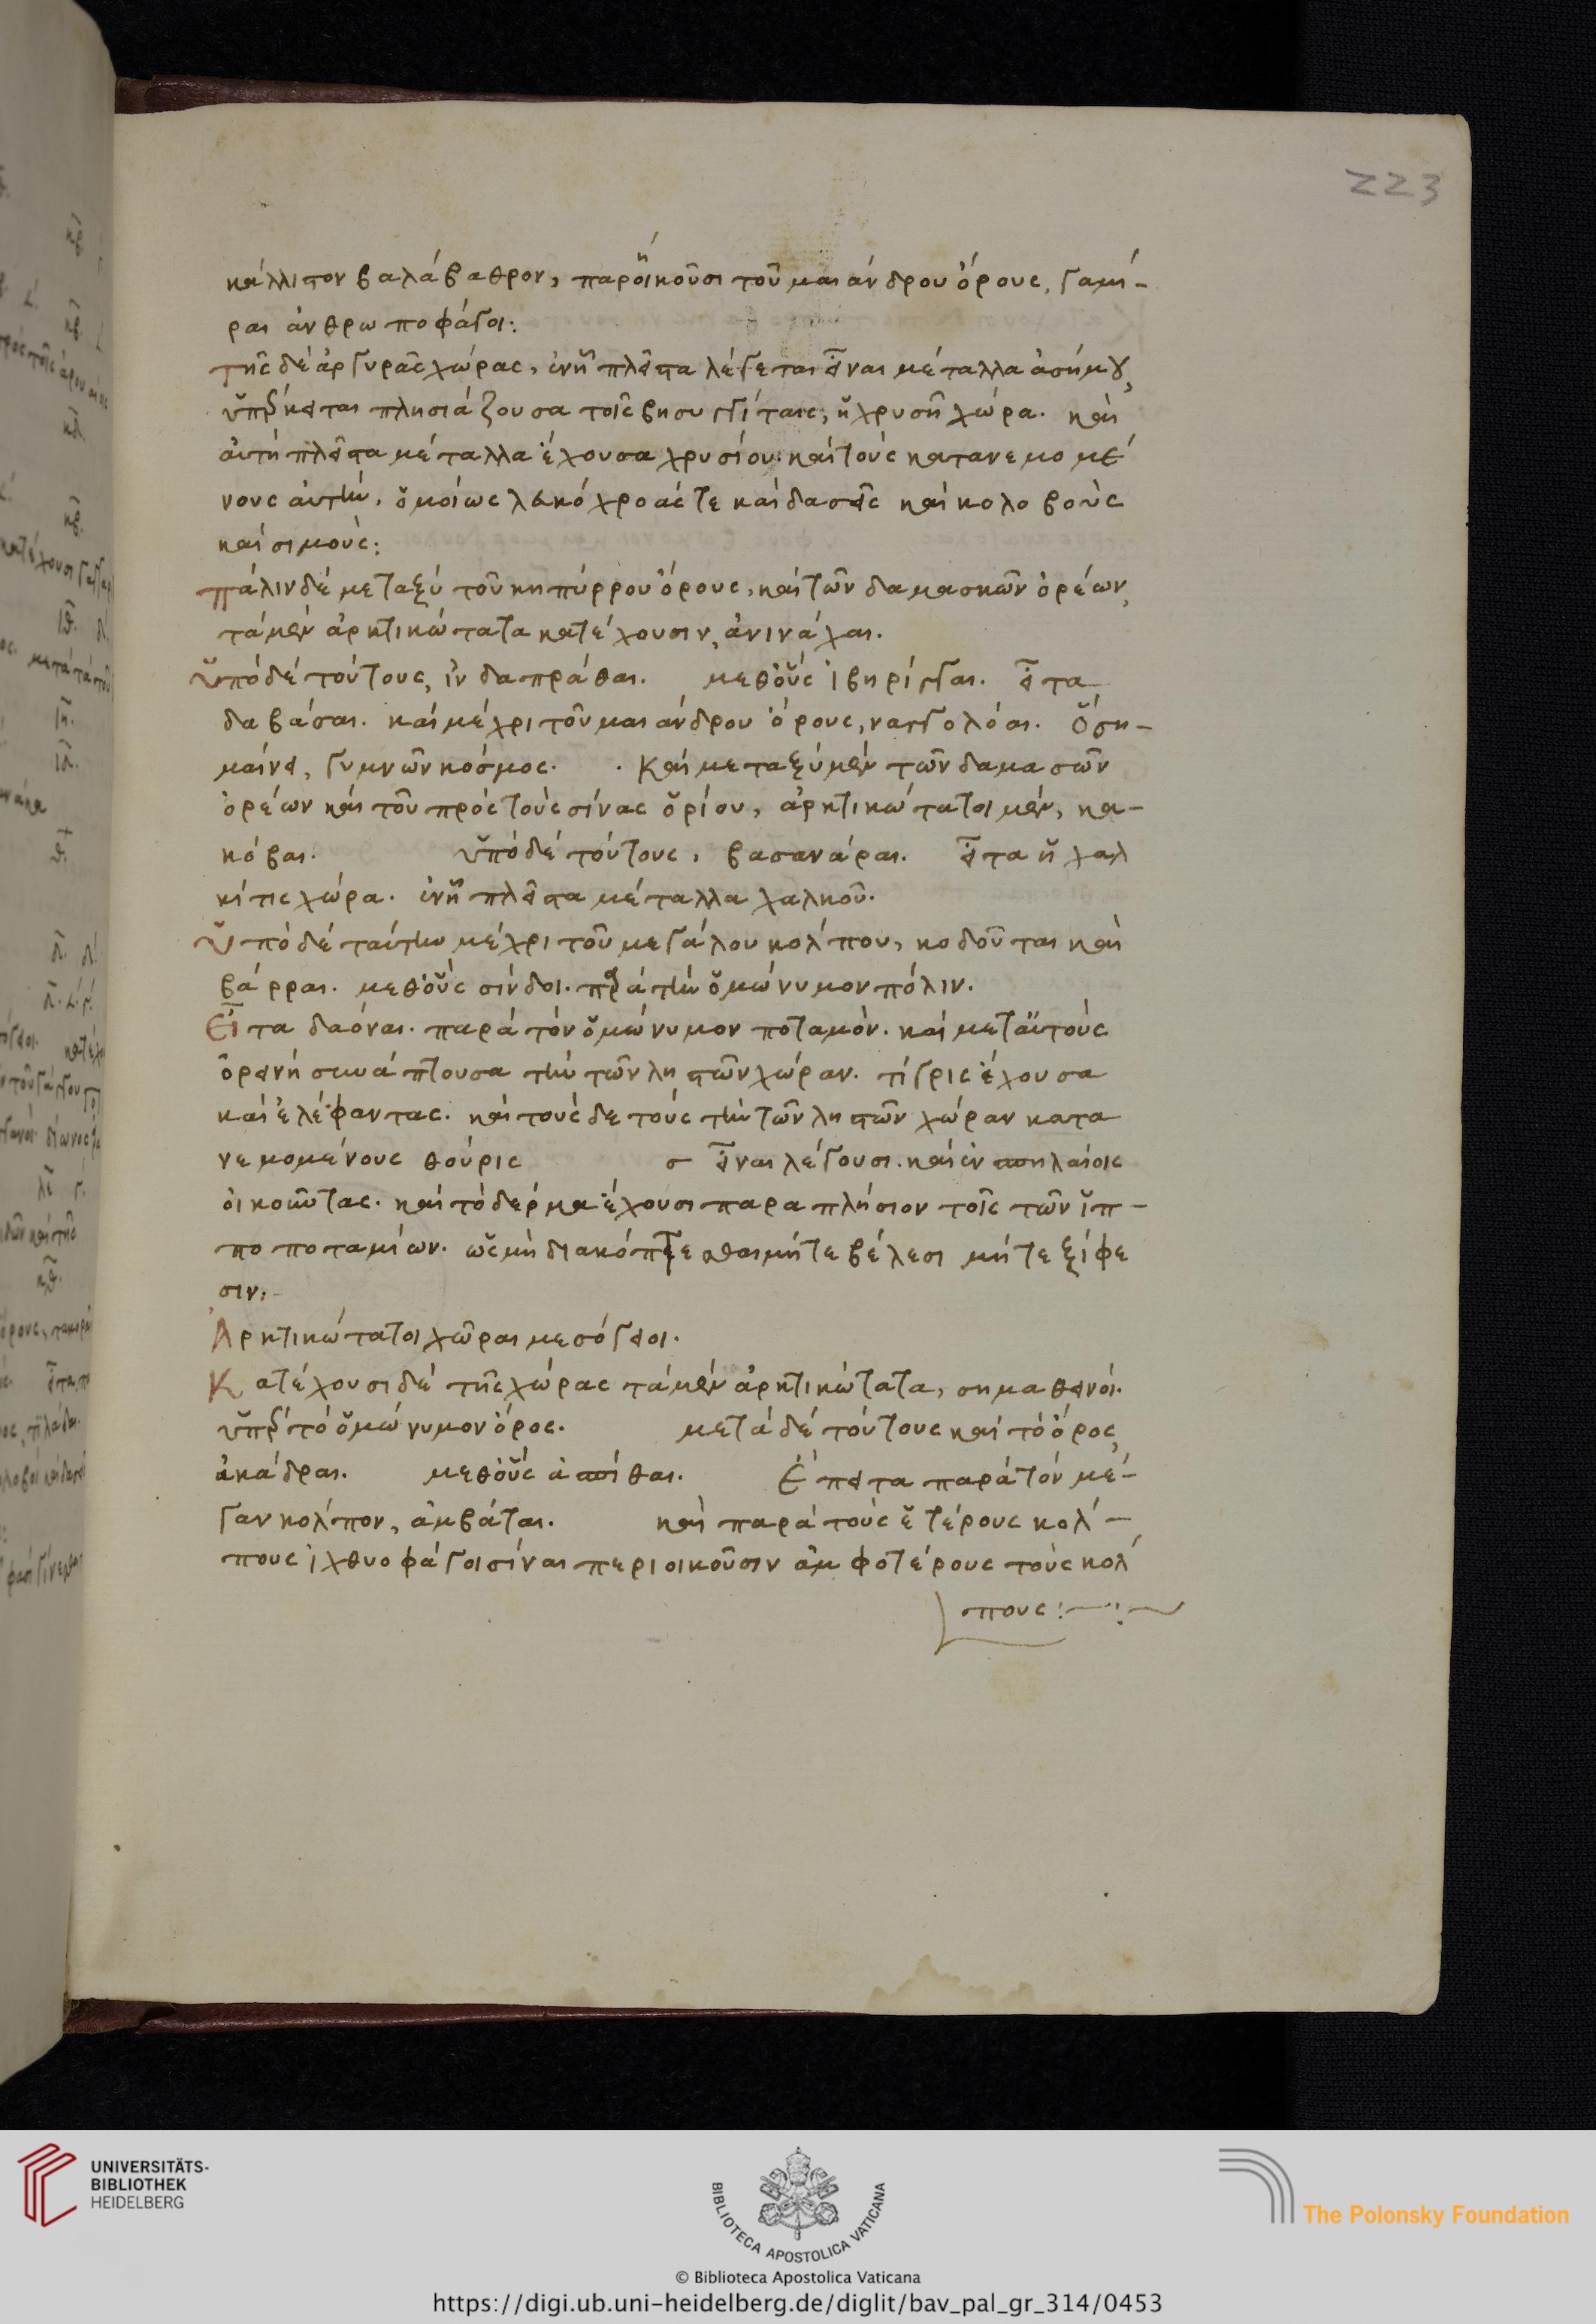 223
κάλλιστον βαλάβαθρον, παροικοῦσι τοῦ μαιάνδρου ὄρους, ταμή-
ραι ἀνθρωποφάγοι:
τῆς δὲ ἀργυρᾶς χώρας, ἐν ᾗ πλεῖστα λέγεται εἶναι μέταλλα ἀσήμου,
ὑπέρκειται πλησιάζουσα τοῖς βησυγγίταις, ἡ χρυσῆ χώρα. καὶ
αὐτὴ πλεῖστα μέταλλα ἔχουσα χρυσίου· καὶ τοὺς κατανεμομέ
νους αὐτὴν, ὁμοίως λευκόχροάς τε καὶ δασεῖς καὶ κολοβοὺς
καὶ σιμούς:
πάλιν δὲ μεταξὺ τοῦ κηπύρρου ὄρους, καὶ τῶν δαμασκῶν ὀρέων,
τὰ μὲν ἀρκτικώτατα κατέχουσιν, ἀνινάχαι.
ὑπὸ δὲ τούτους, ἰνδαπράθαι. μεθ' οὓς ἰβηρίγγαι. εἶτα
δαβάσαι. καὶ μέχρι τοῦ μαιάνδρου ὄρους, ναγγολόαι. ὃ ση-
μαίνει, γυμνῶν κόσμος. · Καὶ μεταξὺ μὲν τῶν δαμασῶν
ὀρέων καὶ τοῦ πρὸς τοὺς σίνας ὁρίου, ἀρκτικώτατοι μὲν, κα-
κόβαι. ὑπὸ δὲ τούτους, βασανάραι. εἶτα ἡ χαλ
κίτις χώρα. ἐν ᾗ πλεῖστα μέταλλα χαλκοῦ.
Ὑπὸ δὲ ταύτην μέχρι τοῦ μεγάλου κόλπου, κοδοῦται καὶ
βάρραι. μεθ' οὓς σίνδοι. παρὰ τὴν ὁμώνυμον πόλιν.
Εἶτα δαόναι. παρὰ τὸν ὁμώνυμον ποταμόν. καὶ μετ' αὐτοὺς
ὀρεινὴ συνάπτουσα τὴν τῶν ληστῶν χώραν. τίγρις ἔχουσα
καὶ ἐλέφαντας. καὶ τοὺς δε τοὺς τὴν τῶν ληστῶν χώραν κατα
νεμομένους θούρις σ εἶναι λέγουσι. καὶ ἐν σπηλαίοις
οἰκοῦντας. καὶ τὸ δέρμα ἔχουσι παραπλήσιον τοῖς τῶν ἱπ-
ποποταμίων. ὡς μὴ διακόπτεσθαι μήτε βέλεσι μήτε ξίφε
σιν:
Ἀρκτικώτατοι χῶραι μεσόγειοι.
Κατέχουσι δὲ τῆς χώρας τὰ μὲν ἀρκτικώτατα, σημαθεινοί.
ὑπὲρ τὸ ὁμώνυμον ὄρος. μετὰ δὲ τούτους καὶ τὸ ὄρος,
ἀκάδραι. μεθ' οὓς ἀσπίθαι. Ἔπειτα παρὰ τὸν μέ-
γαν κόλπον, ἀμβάται. καὶ παρὰ τοὺς ἑτέρους κόλ-
πους ἰχθυοφάγοι σίναι περιοικοῦσιν ἀμφοτέρους τοὺς κόλ
πους:
UNIVERSITÄTS-
BIBLIOTHEK
HEIDELBERG
BIBLIOTECA APOSTOLICA VATICANA
The Polonsky Foundation
© Biblioteca Apostolica Vaticana
https://digi.ub.uni-heidelberg.de/diglit/bav_pal_gr_314/0453